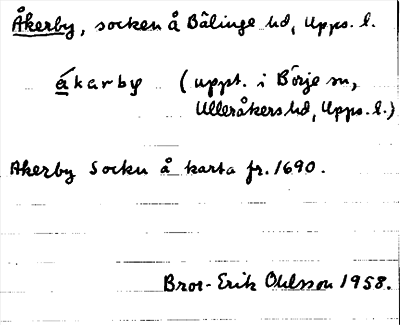 Åkerby, socken å Bälinge hd, Upps. l.
ákarby (uppt. i Börje sn,
Ulleråkers hd, Upps. l.)
Åkerby Socken å karta fr. 1690.
Bror-Erik Ohlsson 1958.